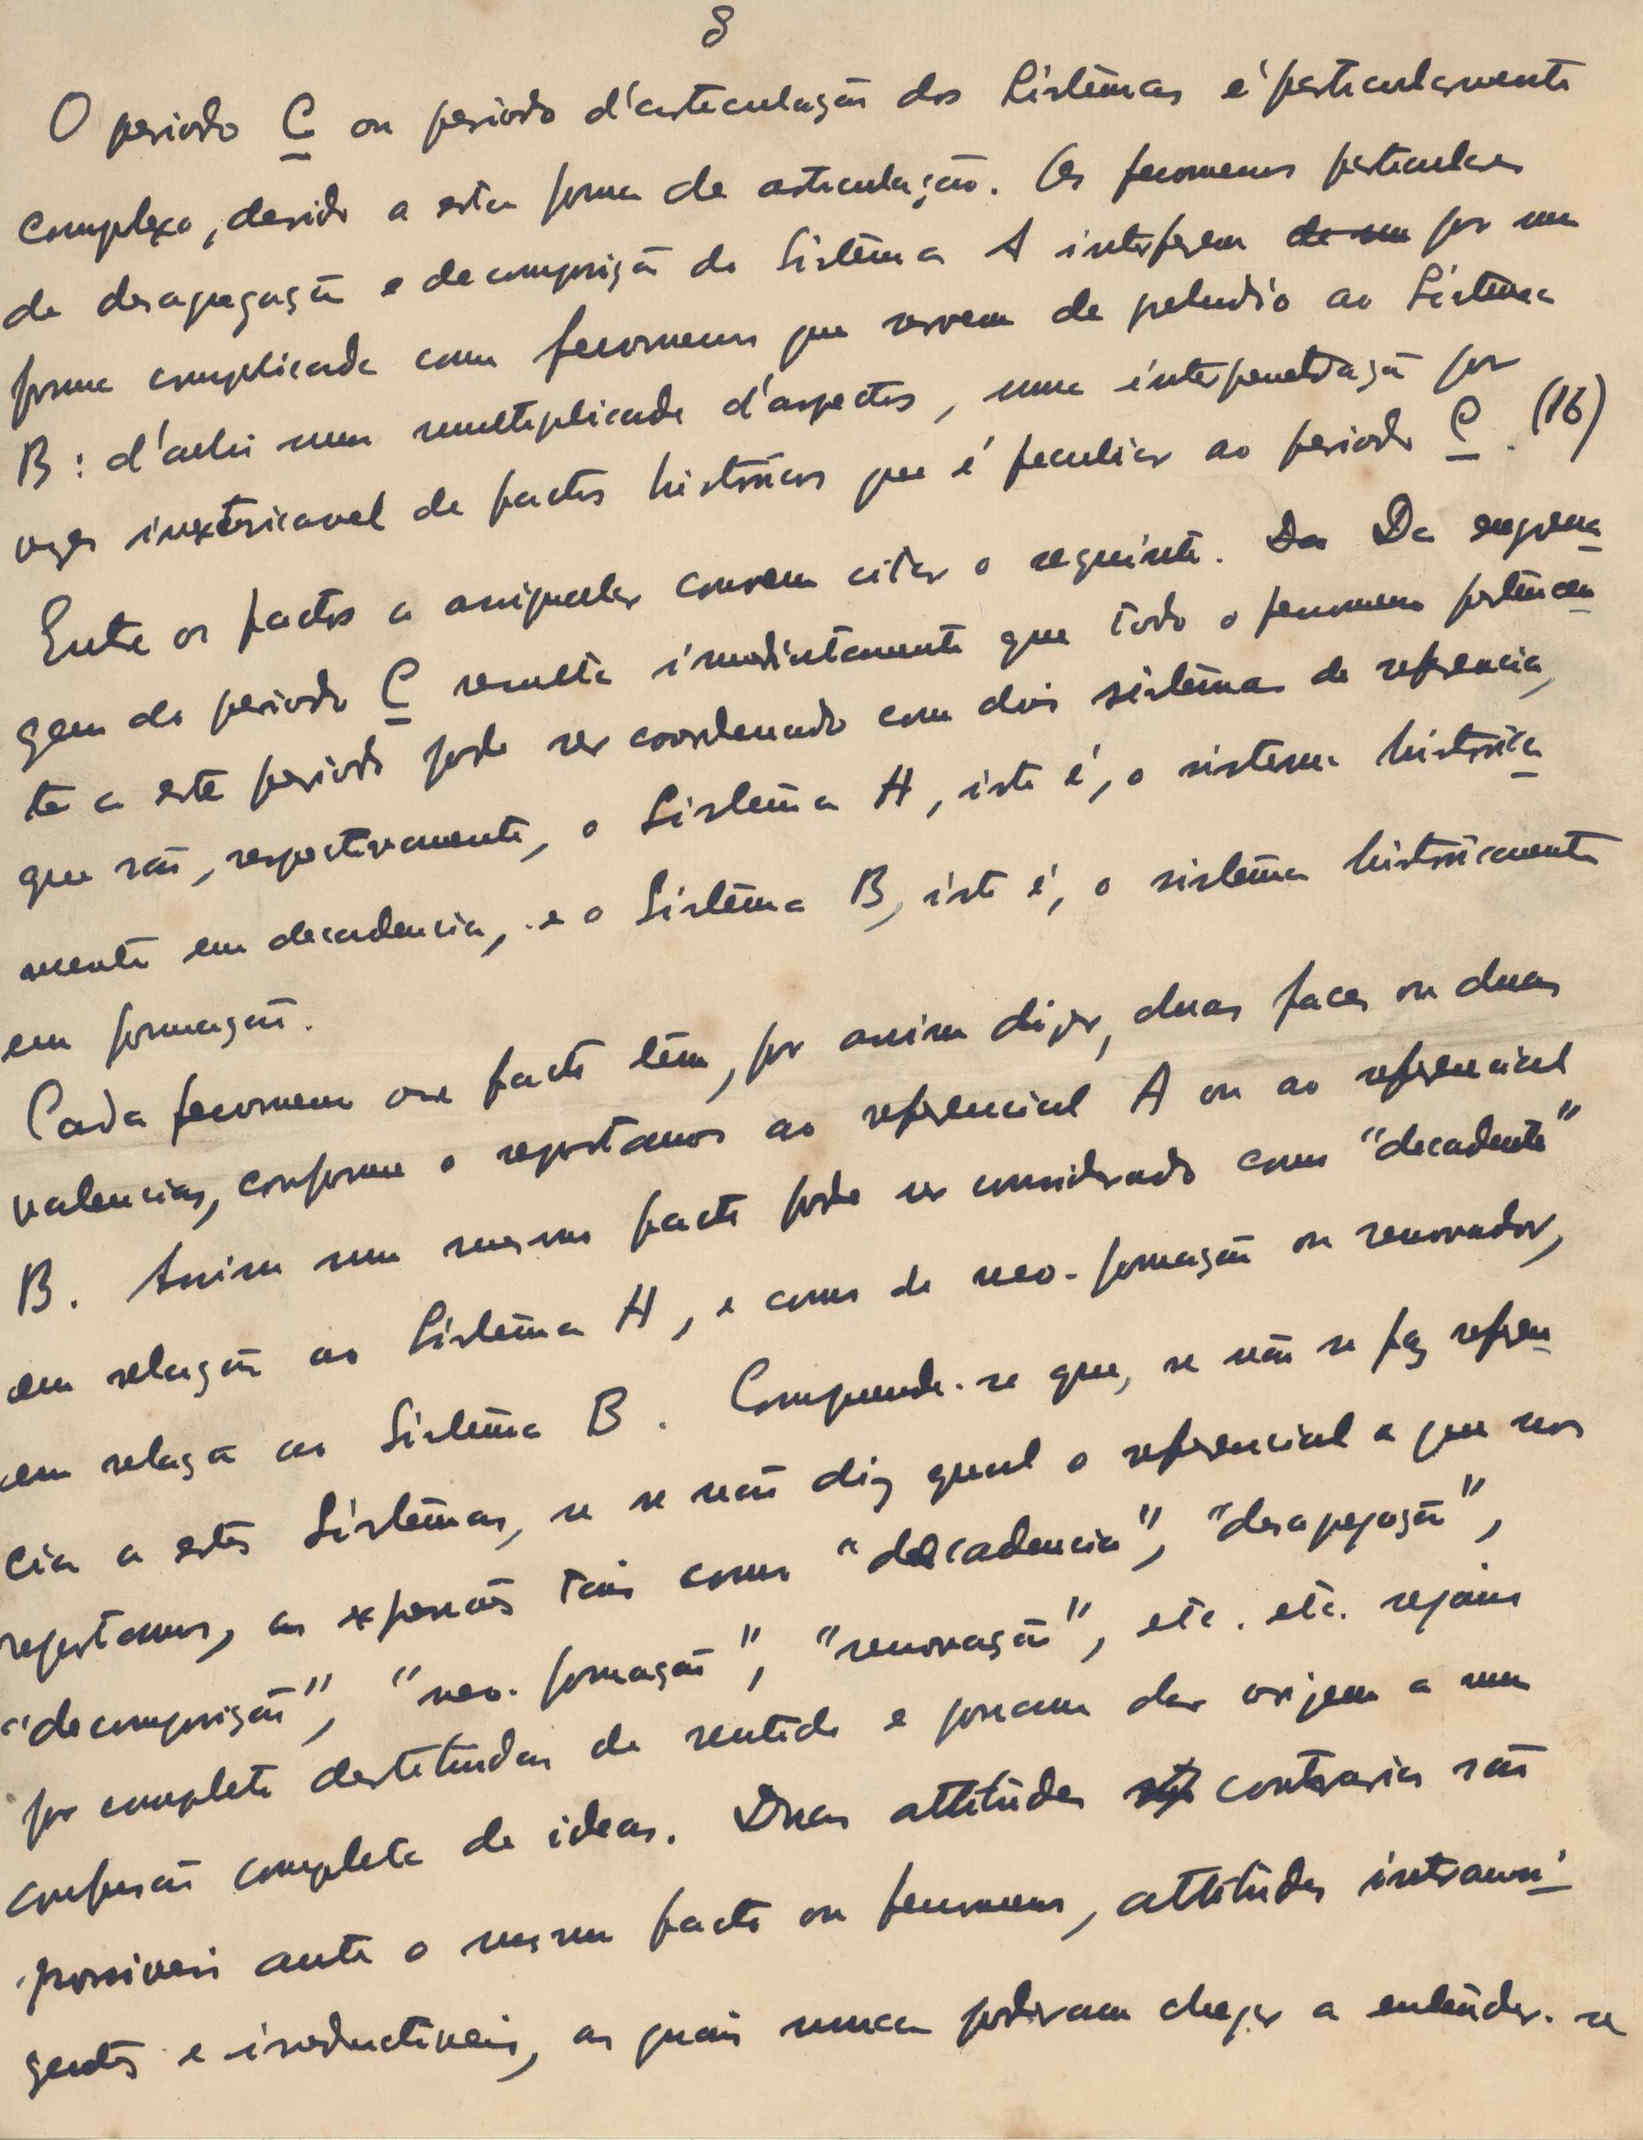 8
O periodo C ou periodo d'articulação dos Sistêmas é particularmente
complexo, devido a esta forma de articulação. Os fenomenos particulares
de desagregação e decomposição do Sistêma A interferem de um por uma
forma complicada com fenomenos que servem de preludio ao Sistêma
B: d'ahi uma multiplicidade d'aspectos, uma interpenetração por
vezes inextricavel de factos históricos que é peculiar ao periodo C. (16)
Entre os factos a assignalar convem citar o seguinte. Da Da engrena
gem do periodo C resulta imediatamente que todo o fenomeno pertencen
te a este periodo pode ser coordenado com dois sistêmas de referencia,
que são, respectivamente, o Sistêma A, isto é, o sistema historica
mente em decadencia, e o Sistêma B, isto é, o sistêma históricamente
em formação.
Cada fenomeno ou facto têm, por assim dizer, duas faces ou duas
valencias, conforme o reportamos ao referencial A ou ao referencial
B. Assim um mesmo facto pode ser considerado como "decadente"
em relação ao Sistêma A, e como de neo-formação ou renovador,
em relação ao Sistêma B. Compreende-se que, se não se faz referen
cia a estes Sistêmas, se se não diz qual o referencial a que nos
reportamos, as expressões tais como "decadencia", "desagregação",
"decomposição", "neo-formação", "renovação", etc. etc. sejam
por completo destituidas de sentido e possam dar origem a uma
confusão completa de ideas. Duas attitudes contrarias são
possiveis ante o mesmo facto ou fenomeno, attitudes intransi
gentes e irreductiveis, as quais nunca poderam chegar a entender-se